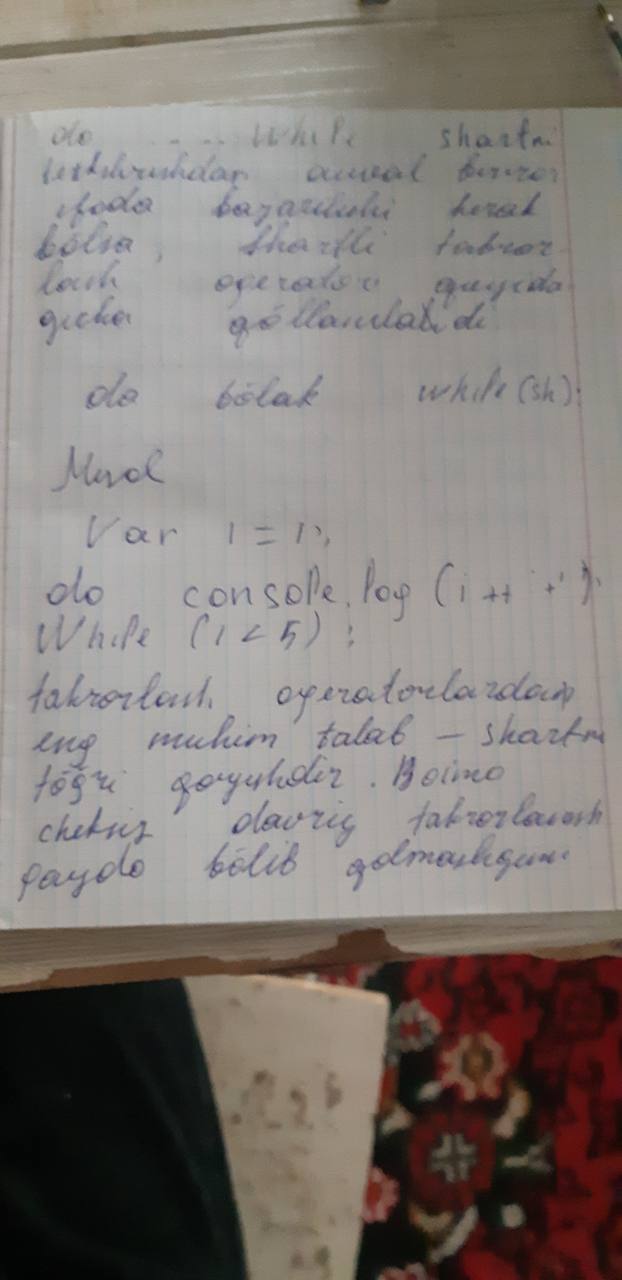 do .... While shartni
tekshrishdan avval biror
ifoda bajarilishi kerak
bólsa, shartli takror-
lash operatori quyida-
gicha qóllaniladi
do bólak while (sh);
Misol
Var i = 1;
do console.log (i++ + ' ');
While (i < 5) ;
takrorlash operatorlardan
eng muhim talab — shartni
tóğri qoyishdir. Boimo
cheksiz davriy takrorlanish
paydo bólib qolmasligini